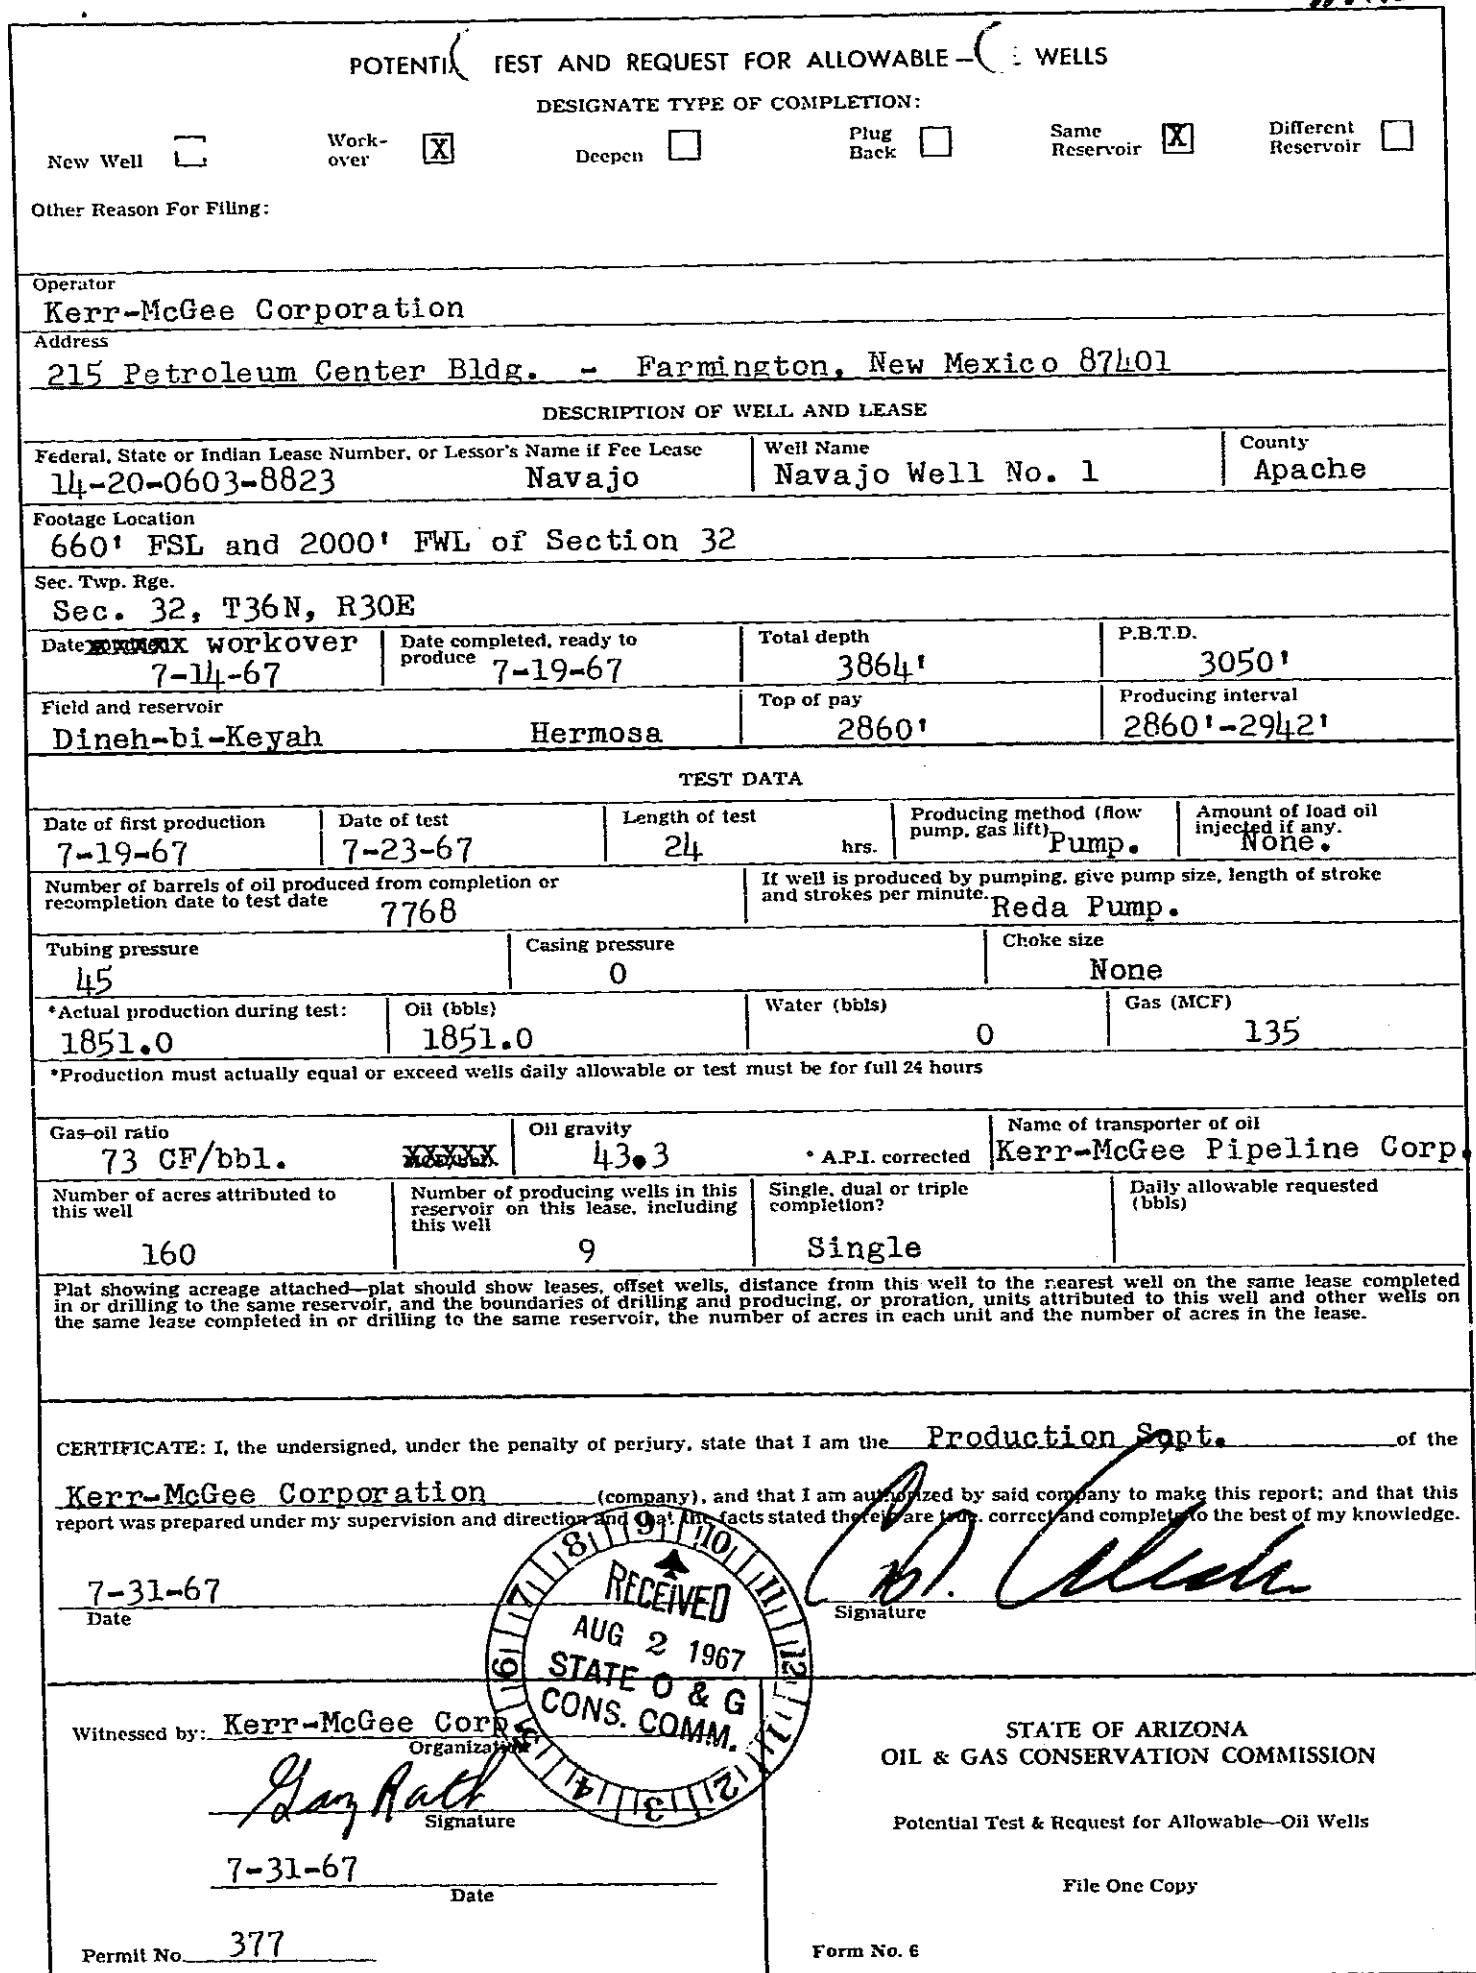 POTENTI TEST AND REQUEST FOR ALLOWABLE – WELLS
DESIGNATE TYPE OF COMPLETION:
New Well
Work-
over X
Deepen
Plug
Back
Same
Reservoir X
Different
Reservoir
Other Reason For Filing:
Operator
Kerr-McGee Corporation
Address
215 Petroleum Center Bldg. - Farmington, New Mexico 87401
DESCRIPTION OF WELL AND LEASE
Federal, State or Indian Lease Number, or Lessor's Name if Fee Lease
14-20-0603-8823 Navajo
Well Name
Navajo Well No. 1
County
Apache
Footage Location
660' FSL and 2000' FWL of Section 32
Sec. Twp. Rge.
Sec. 32, T36N, R30E
Date workover
7-14-67
Date completed, ready to
produce 7-19-67
Total depth
3864'
P.B.T.D.
3050'
Field and reservoir
Dineh-bi-Keyah Hermosa
Top of pay
2860'
Producing interval
2860'-2942'
TEST DATA
Date of first production
7-19-67
Date of test
7-23-67
Length of test
24 hrs.
Producing method (flow
pump, gas lift) Pump.
Amount of load oil
injected if any.
None.
Number of barrels of oil produced from completion or
recompletion date to test date 7768
If well is produced by pumping, give pump size, length of stroke
and strokes per minute. Reda Pump.
Tubing pressure
45
Casing pressure
0
Choke size
None
*Actual production during test:
1851.0
Oil (bbls)
1851.0
Water (bbls)
0
Gas (MCF)
135
*Production must actually equal or exceed wells daily allowable or test must be for full 24 hours
Gas-oil ratio
73 CF/bbl. XXXXX
Oil gravity
43.3 ° A.P.I. corrected
Name of transporter of oil
Kerr-McGee Pipeline Corp.
Number of acres attributed to
this well
160
Number of producing wells in this
reservoir on this lease, including
this well
9
Single, dual or triple
completion?
Single
Daily allowable requested
(bbls)
Plat showing acreage attached—plat should show leases, offset wells, distance from this well to the nearest well on the same lease completed
in or drilling to the same reservoir, and the boundaries of drilling and producing, or proration, units attributed to this well and other wells on
the same lease completed in or drilling to the same reservoir, the number of acres in each unit and the number of acres in the lease.
CERTIFICATE: I, the undersigned, under the penalty of perjury, state that I am the Production Sopt. of the
Kerr-McGee Corporation (company), and that I am authorized by said company to make this report; and that this
report was prepared under my supervision and direction and that the facts stated therein are true, correct and complete to the best of my knowledge.
7-31-67
Date
Signature
RECEIVED
AUG 2 1967
STATE O & G
CONS. COMM.
1 2 3 4 5 6 7 8 9 10 11 12
Witnessed by: Kerr-McGee Corp
Organization
Gary Rath
Signature
7-31-67
Date
Permit No. 377
STATE OF ARIZONA
OIL & GAS CONSERVATION COMMISSION
Potential Test & Request for Allowable—Oil Wells
File One Copy
Form No. 6